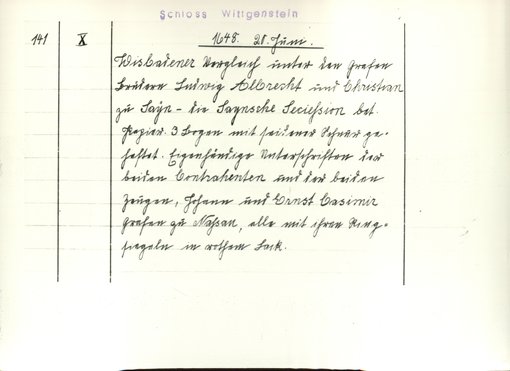 Schloss Wittgenstein
141 X 1648. 28. Juni.
Wisbadener Vergleich unter den Grafen
Brüdern Ludwig Albrecht und Christian
zu Sayn - die Saynsche Seciession bet.
Papier. 3 Bogen mit seidener Schnur ge-
heftet. Eigenhändige Unterschriften der
beiden Contrahenten und der beiden
Zeugen, Johann und Ernst Casimir
Grafen zu Nassau, alle mit ihren Ring-
siegeln in rothem Lack.